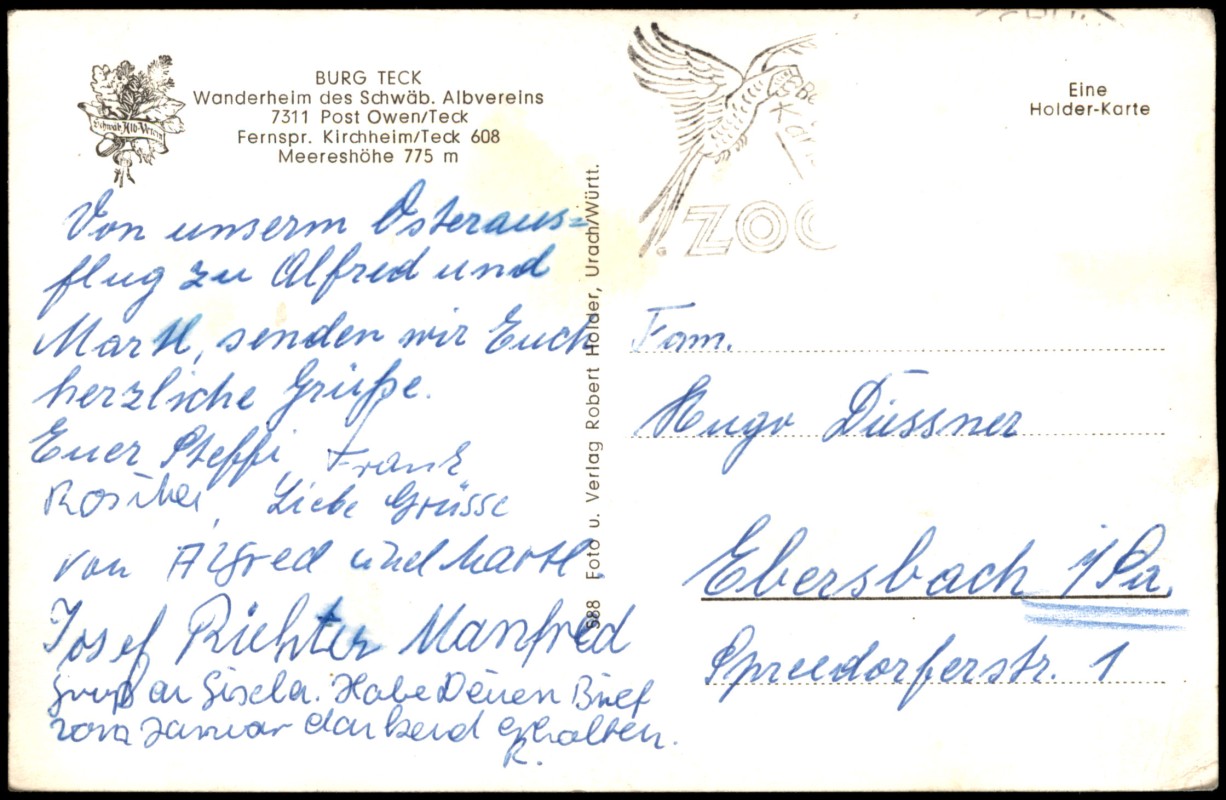 Schwäb. Alb-Verein
BURG TECK
Wanderheim des Schwäb. Albvereins
7311 Post Owen/Teck
Fernspr. Kirchheim/Teck 608
Meereshöhe 775 m
Von unserm Osteraus=
flug zu Alfred und
Martl, senden wir Euch
herzliche Grüße.
Euer Steffi, Frank
Liebe Grüsse
von Alfred und Martl.
Josef Richter Manfred
Gruß an Gisela. Habe Deinen Brief
vom Januar dankend erhalten.
R.
988 Foto u. Verlag Robert Holder, Urach/Württ.
ZOO
Eine
Holder-Karte
Fam.
Hugo Düssner
Ebersbach i/Sa.
Spreedorferstr. 1